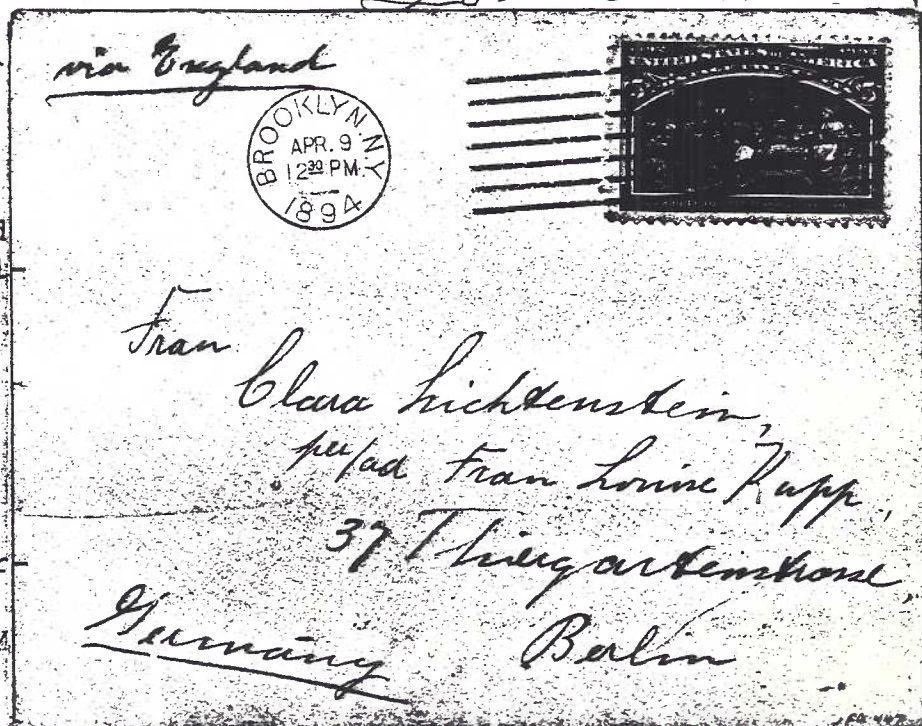 via England
BROOKLYN. N.Y.
APR. 9
12 30 PM
1894
UNITED STATES OF AMERICA
Frau
Clara Lichtenstein,
per/ad Frau Louise Kupp,
37 Thiergartenstrasse,
Berlin
Germany